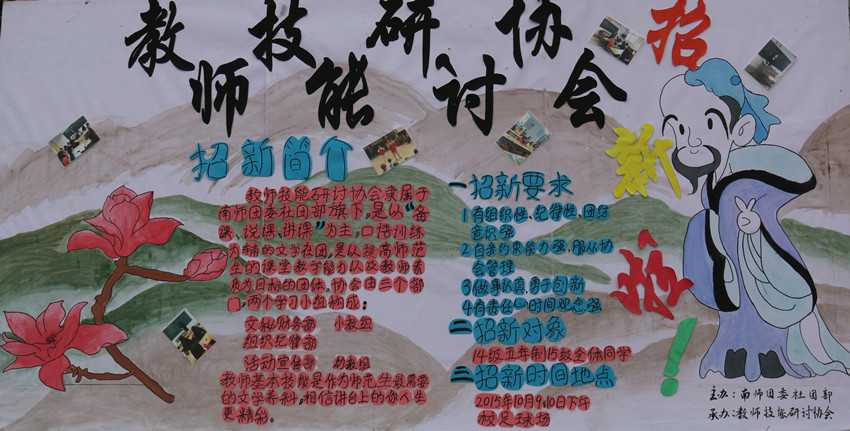 教技研协
师能讨会
招新啦！
招新简介
教师技能研讨协会隶属于
南师团委社团部旗下,是以“备
课、说课、讲课”为主,口语训练
为辅的文学社团,是以提高师范
生的课堂教学能力以及教师素
质为目标的团体。协会由三个部
门,两个学习小组构成：
文秘财务部 小教组
组织纪检部
活动宣传部 幼教组
教师基本技能是作为师范生最需要
的文学养料,相信讲台上的你人生
更精彩。
一招新要求
1有组织性、纪律性、团结
意识强
2自我约束能力强、服从协
会管理
3做事认真,勇于创新
4有责任心时间观念强
二招新对象
14级五年制15级全体同学
三招新时间地点
2015年10月9,10日下午
校足球场
主办：南师团委社团部
承办：教师技能研讨协会